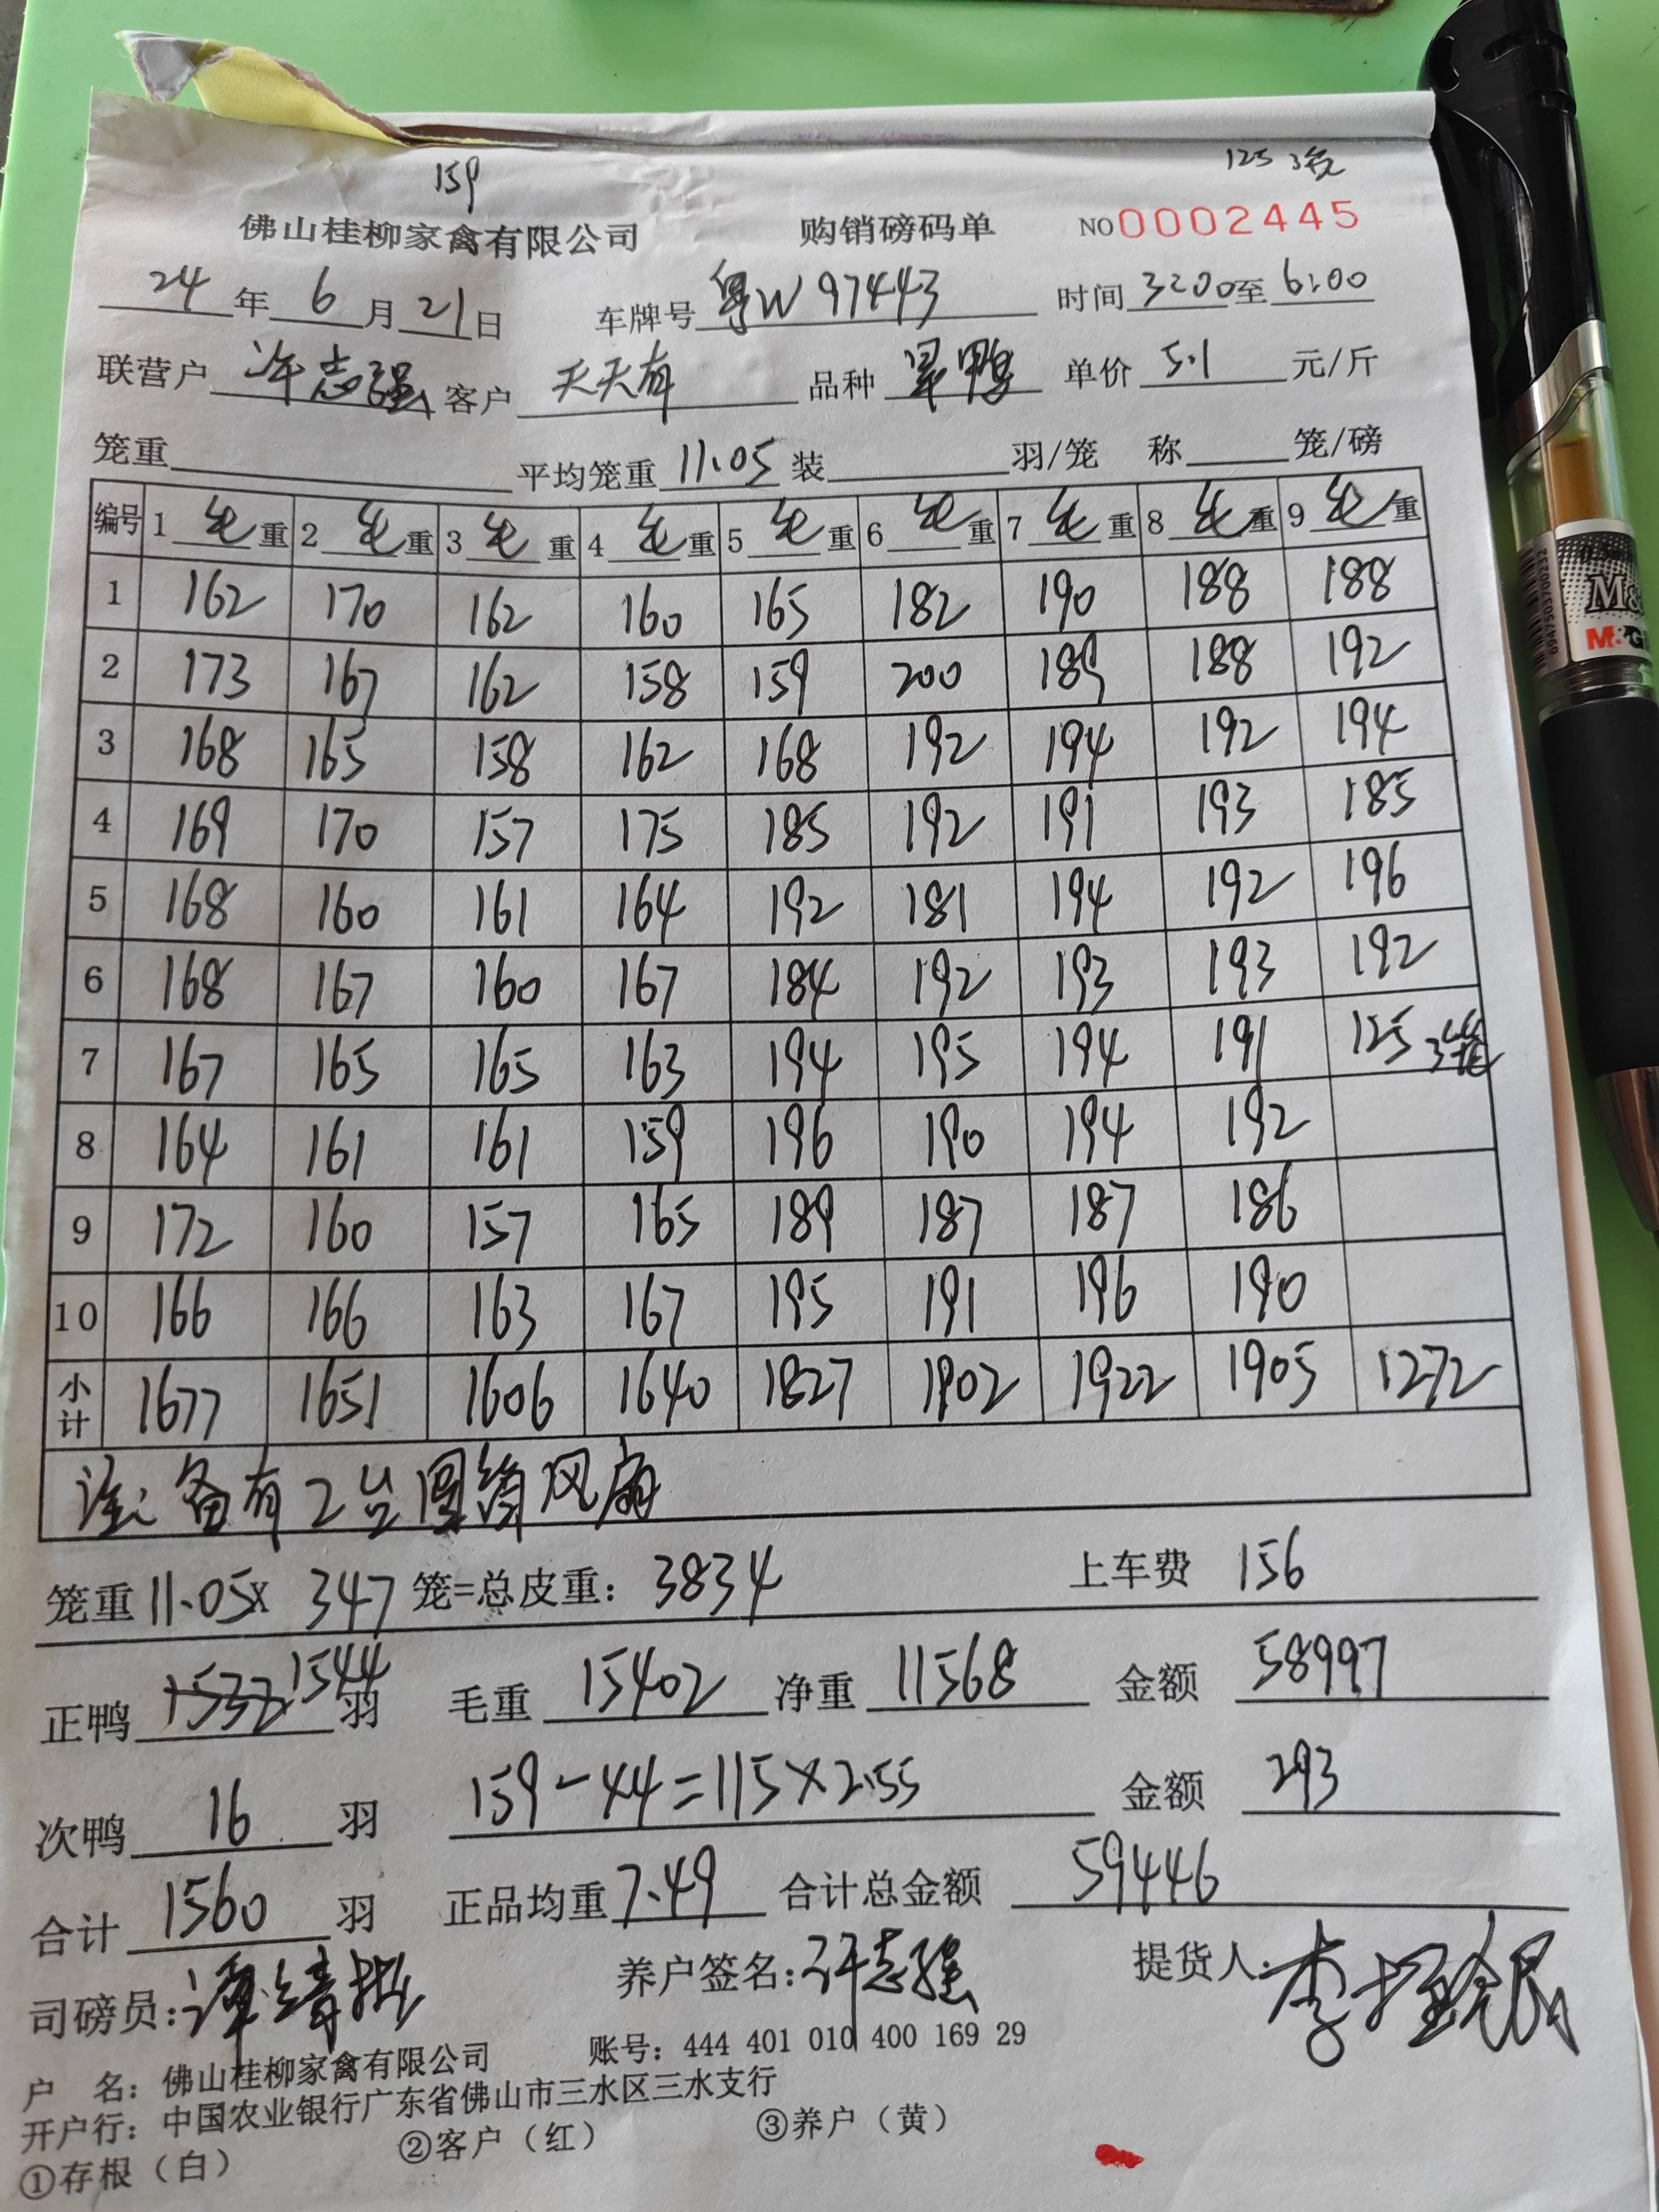 159
125 3笼
佛山桂柳家禽有限公司 购销磅码单 NO 0002445
24 年 6 月 21 日 车牌号 粤W 97443 时间 3:00 至 6:00
联营户 许志强 客户 天天有 品种 旱鸭 单价 5.1 元/斤
笼重 平均笼重 11.05 装 羽/笼 称 笼/磅
编号 1 毛 重 2 毛 重 3 毛 重 4 毛 重 5 毛 重 6 毛 重 7 毛 重 8 毛 重 9 毛 重
1 162 170 162 160 165 182 190 188 188
2 173 167 162 158 159 200 189 188 192
3 168 165 158 162 168 192 194 192 194
4 169 170 157 175 185 192 191 193 185
5 168 160 161 164 192 181 194 192 196
6 168 167 160 167 184 192 193 193 192
7 167 165 165 163 194 195 194 191 125 3笼
8 164 161 161 159 196 190 194 192
9 172 160 157 165 189 187 187 186
10 166 166 163 167 195 191 196 190
小计 1677 1651 1606 1640 1827 1902 1922 1905 1272
注: 备有2台圆筒风扇
笼重 11.05 x 347 笼=总皮重: 3834 上车费 156
正鸭 1532 1544 羽 毛重 15402 净重 11568 金额 58997
次鸭 16 羽 159-44=115×2.55 金额 293
合计 1560 羽 正品均重 7.49 合计总金额 59446
司磅员: 谭 养户签名: 许志强 提货人: 李
户 名: 佛山桂柳家禽有限公司 账号: 444 401 010 400 169 29
开户行: 中国农业银行广东省佛山市三水区三水支行
①存根（白） ②客户（红） ③养户（黄）
M&G
6947503700232